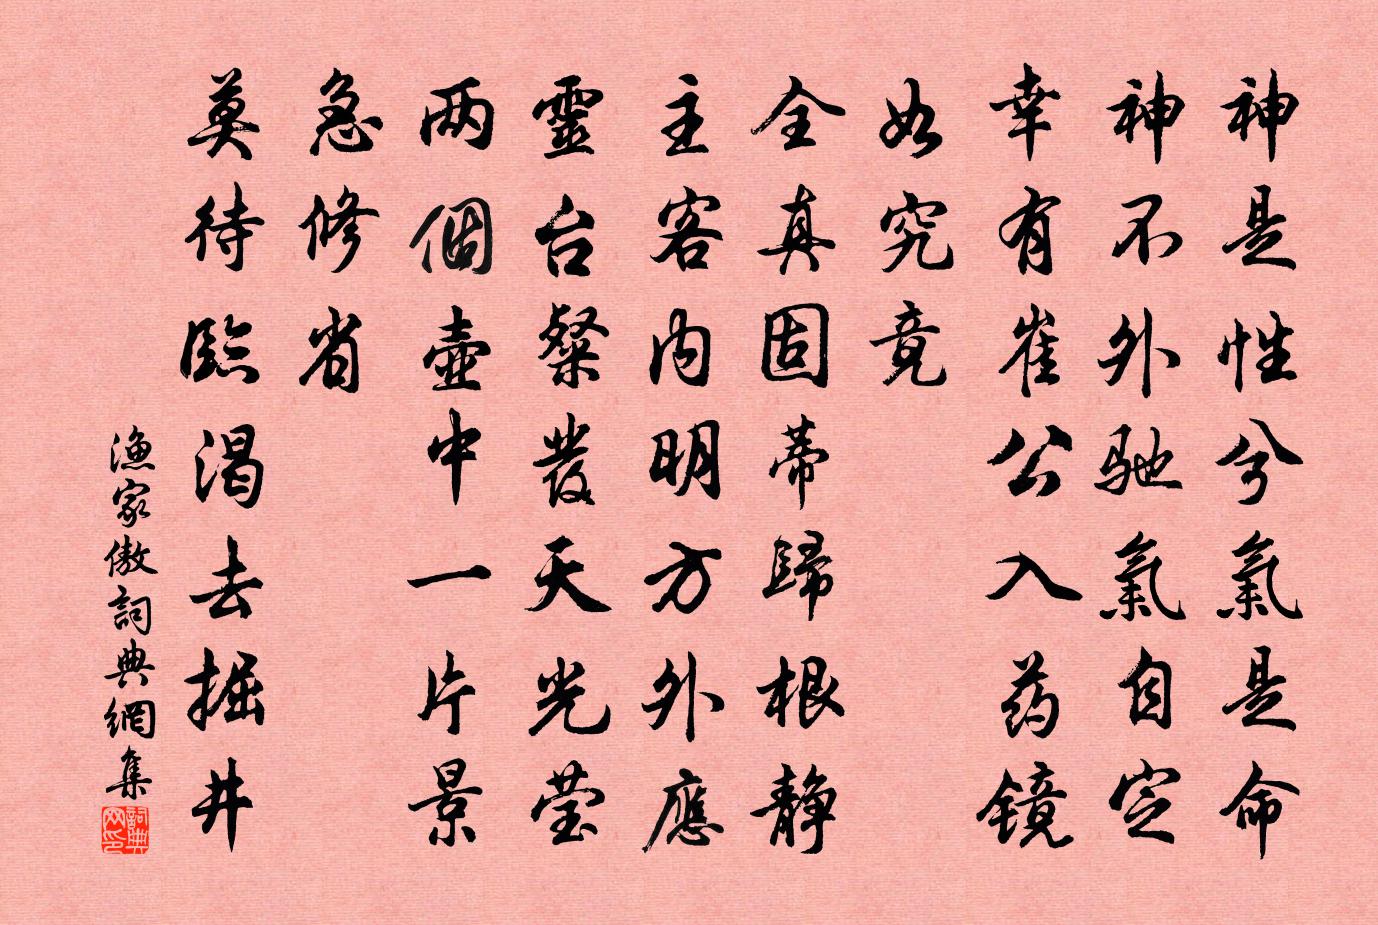 神是性兮氣是命
神不外馳氣自定
幸有崔公入药镜
如究竟
全真固蒂歸根静
主客内明方外應
靈台粲發天光莹
两個壺中一片景
急修省
莫待臨渴去掘井
漁家傲詞典網集
詞典网印